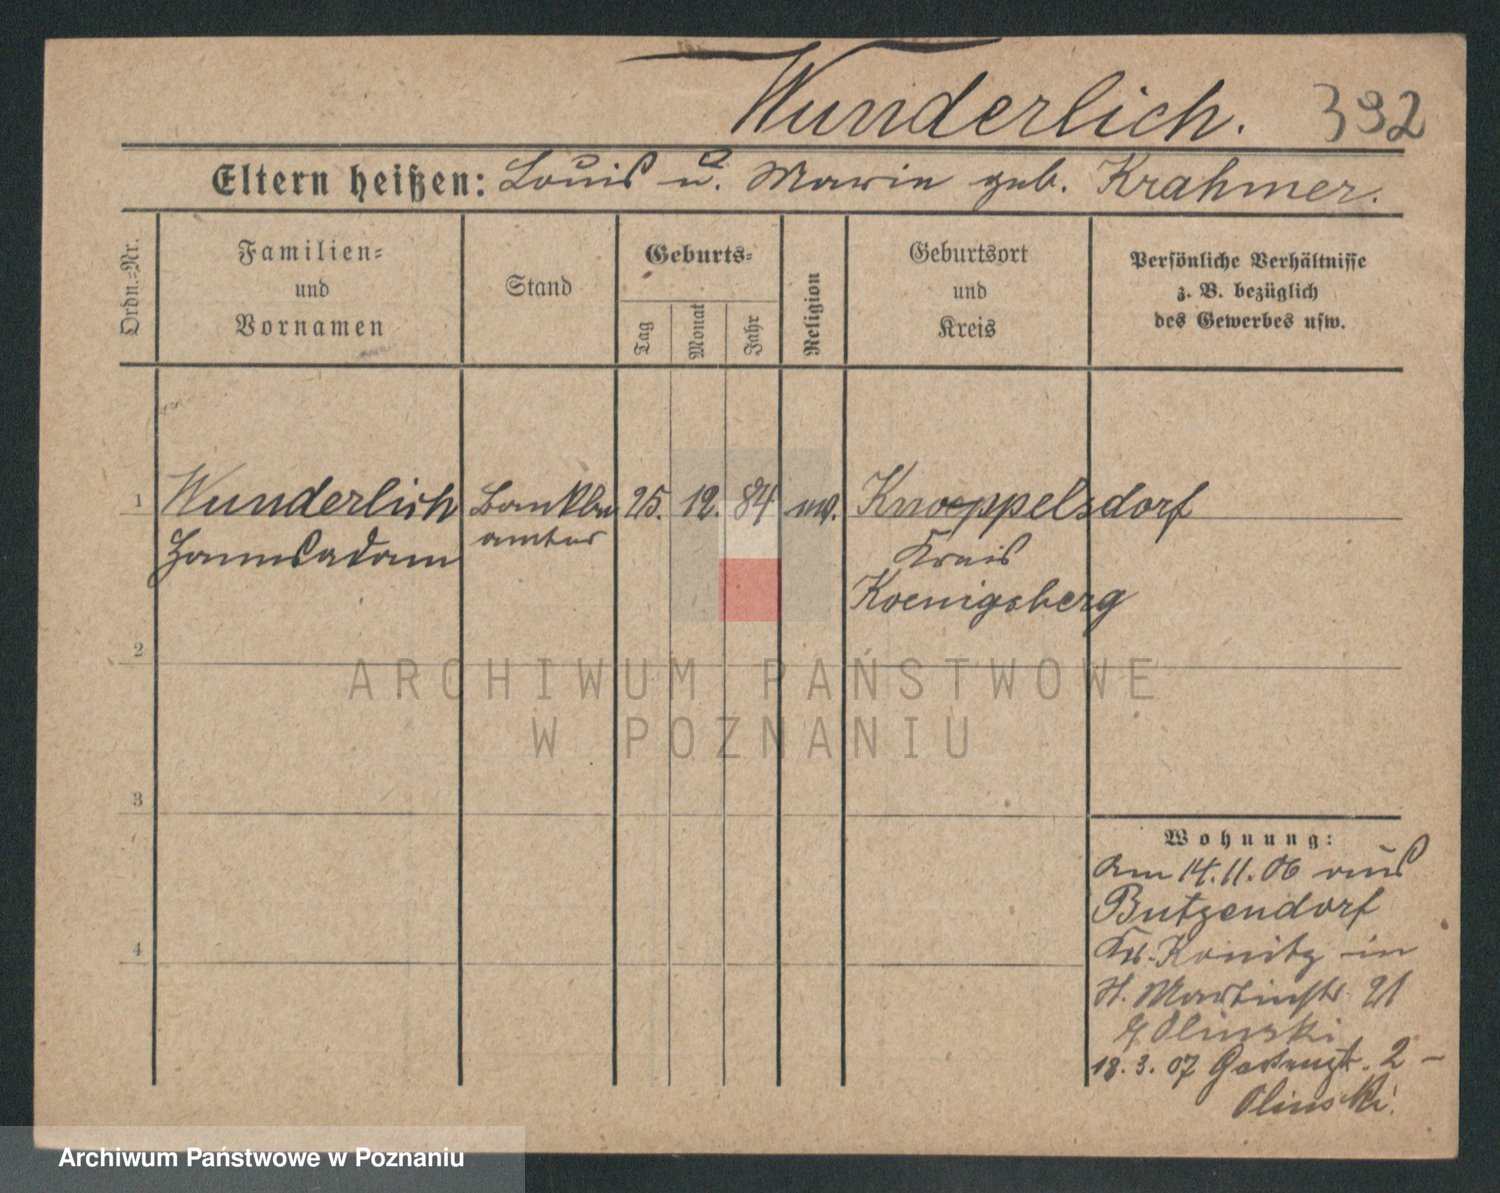 Wunderlich. 392
Eltern heißen: Louis u. Marie geb. Krahmer.
Ordn.=Nr.
Familien=
und
Vornamen
Stand
Geburts=
Tag
Monat
Jahr
Religion
Geburtsort
und
Kreis
Persönliche Verhältnisse
z. B. bezüglich
des Gewerbes usw.
1 Wunderlich Bankbe 25. 12. 84 Knoeppelsdorf
Hannsadam amter Kreis
Koenigsberg
2
3
4
Wohnung:
Am 14.11.06 aus
Butzendorf
Kr. Konitz in
St. Martinstr. 21
Olinski
18. 3. 07 2 -
Olinski.
ARCHIWUM PAŃSTWOWE
W POZNANIU
Archiwum Państwowe w Poznaniu